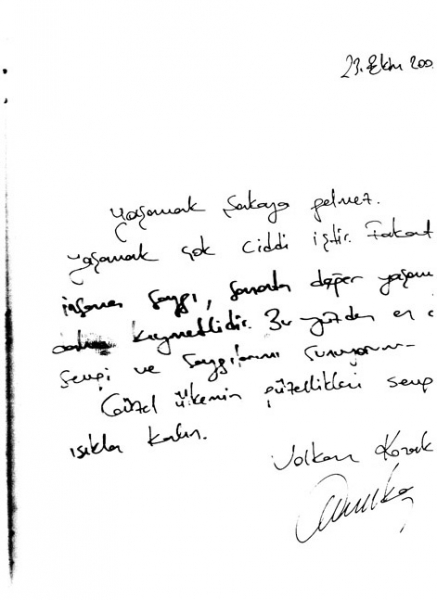 23. Ekim 200
Yaşamak şakaya gelmez.
yaşamak çok ciddi iştir. Fakat
insana saygı, sanata değer
kıymetlidir. Bu yüzden en
sevgi ve saygılarımı sunuyorum.
Güzel ülkemin güzellikleri
ışıkla kalın.
Volkan Konak